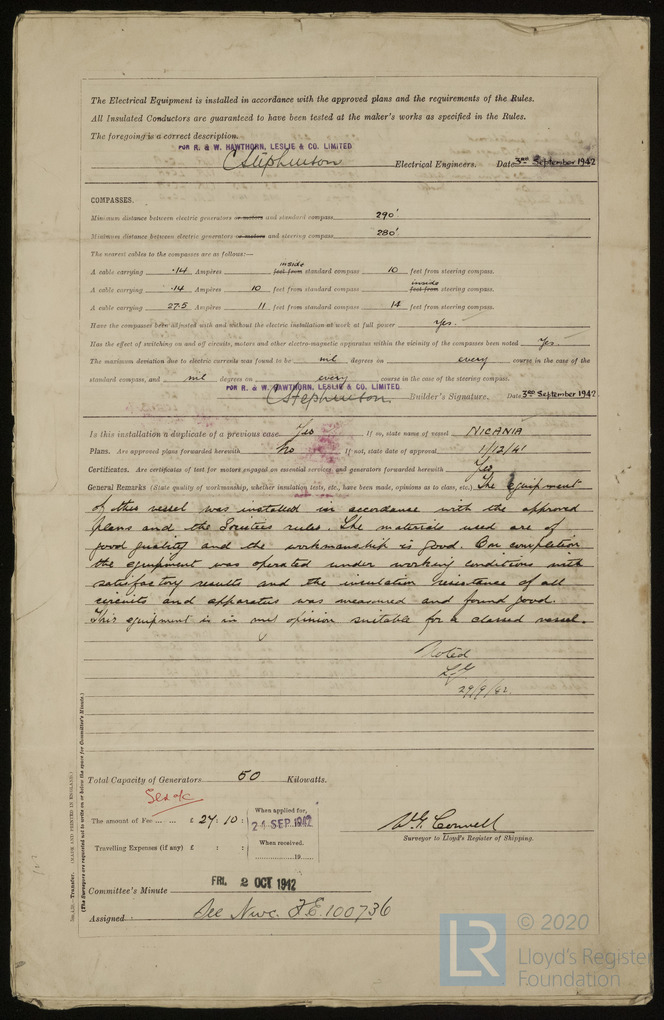 The Electrical Equipment is installed in accordance with the approved plans and the requirements of the Rules.
All Insulated Conductors are guaranteed to have been tested at the maker's works as specified in the Rules.
The foregoing is a correct description.
FOR R. & W. HAWTHORN, LESLIE & CO. LIMITED
C Stephenson Electrical Engineers. Date 3RD September 1942
COMPASSES.
Minimum distance between electric generators or motors and standard compass 290'
Minimum distance between electric generators or motors and steering compass 280'
The nearest cables to the compasses are as follows:—
A cable carrying .14 Ampères inside feet from standard compass 10 feet from steering compass.
A cable carrying .14 Ampères 10 feet from standard compass inside feet from steering compass.
A cable carrying 27.5 Ampères 11 feet from standard compass 14 feet from steering compass.
Have the compasses been adjusted with and without the electric installation at work at full power Yes.
Has the effect of switching on and off circuits, motors and other electro-magnetic apparatus within the vicinity of the compasses been noted Yes.
The maximum deviation due to electric currents was found to be nil degrees on every course in the case of the
standard compass, and nil degrees on every course in the case of the steering compass.
FOR R. & W. HAWTHORN, LESLIE & CO. LIMITED.
C Stephenson Builder's Signature. Date 3RD September 1942
Is this installation a duplicate of a previous case Yes If so, state name of vessel NICANIA
Plans. Are approved plans forwarded herewith No If not, state date of approval 1/12/41
Certificates. Are certificates of test for motors engaged on essential services and generators forwarded herewith Yes
General Remarks (State quality of workmanship, whether insulation tests, etc., have been made, opinions as to class, etc.) The equipment
of this vessel was installed in accordance with the approved
plans and the Societies rules. The materials used are of
good quality and the workmanship is good. On completion
the equipment was operated under working conditions with
satisfactory results and the insulation resistance of all
circuits and apparatus was measured and found good.
This equipment is in my opinion suitable for a classed vessel.
Noted
29/9/42.
Total Capacity of Generators 50 Kilowatts.
The amount of Fee ... ... £ 27 : 10 : When applied for, 24 SEP 1942
Travelling Expenses (if any) £ : : When received, 19
W.G. Connell
Surveyor to Lloyd's Register of Shipping.
Committee's Minute FRI. 2 OCT 1942
Assigned See Nwc. F.E. 100736
Transfer. (MADE AND PRINTED IN ENGLAND.)
(The Surveyors are requested not to write on or below the space for Committee's Minute.)
© 2020
LR Lloyd's Register
Foundation